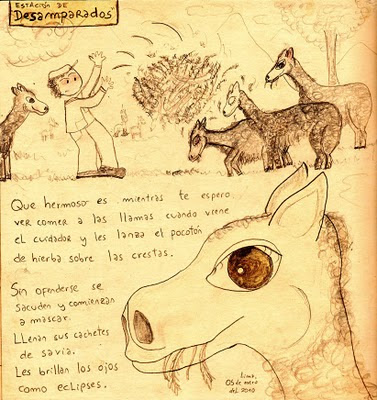 ESTACIÓN DE
Desamparados
Que hermoso es mientras te espero
ver comer a las llamas cuando viene
el cuidador y les lanza el pocotón
de hierba sobre las crestas.
Sin ofenderse se
sacuden y comienzan
a mascar.
Llenan sus cachetes
de savia.
Les brillan los ojos
como eclipses.
Lima,
05 de enero
del 2010